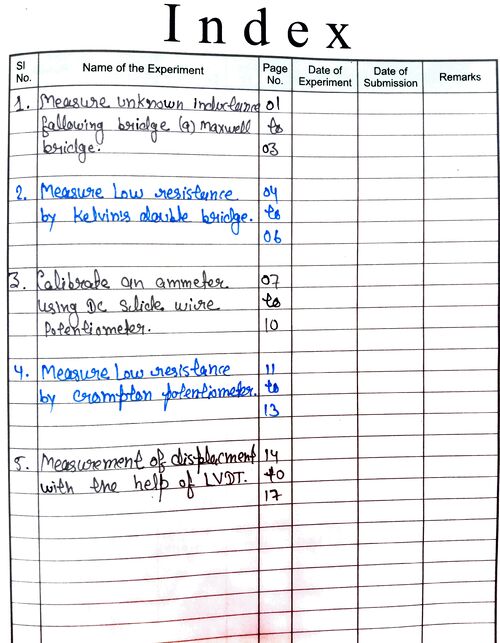 Index
Sl No. Name of the Experiment Page No. Date of Experiment Date of Submission Remarks
1. Measure unknown inductance 01
following bridge (a) maxwell to
bridge. 03
2. Measure Low resistance 04
by Kelvin's double bridge. to
06
3. Calibrate an ammeter 07
using DC slide wire to
Potentiometer. 10
4. Measure Low resistance 11
by crompton potentiometer. to
13
5. Measurement of displacment 14
with the help of LVDT. to
17